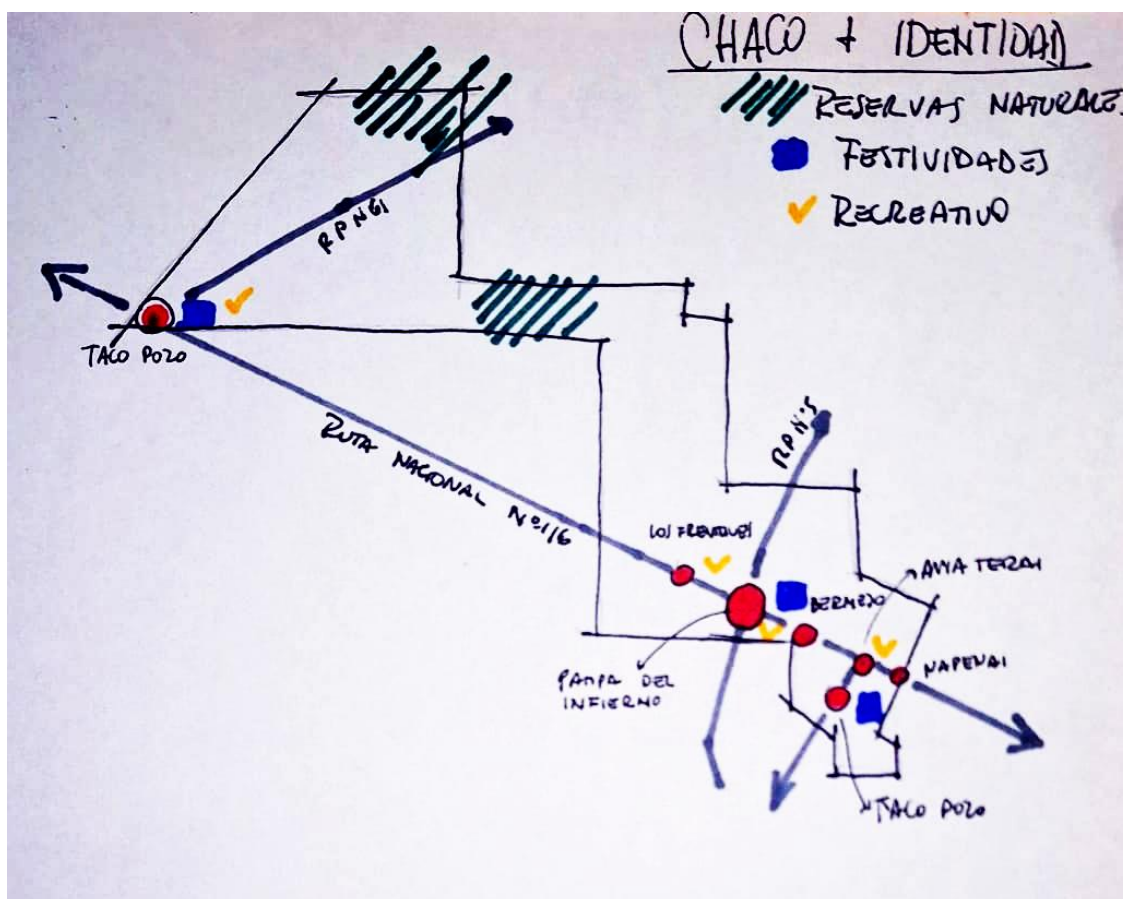 CHACO + IDENTIDAD
RESERVAS NATURALES
FESTIVIDADES
RECREATIVO
RPN61
TACO POZO
RUTA NACIONAL Nº:16
RPN:5
LOS FRENTONES
BERMEJO
AVIA TERAI
NAPENAI
PAMPA DEL
INFIERNO
TACO POZO